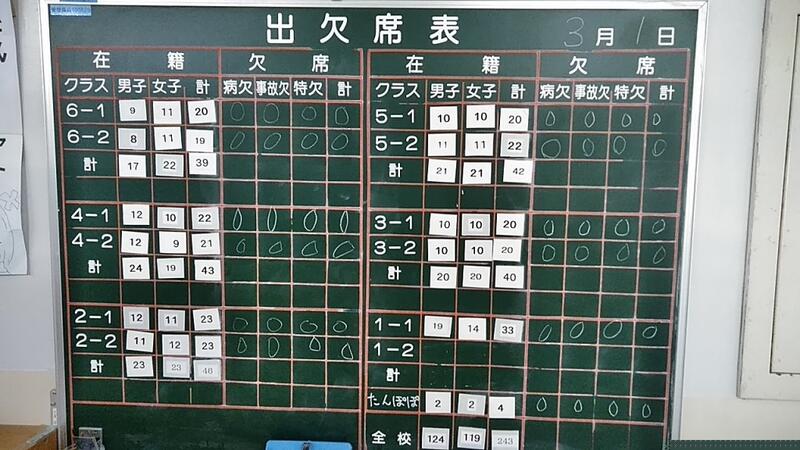 出欠席表 3月1日
在籍 欠席
クラス 男子 女子 計 病欠 事故欠 特欠 計
6-1 9 11 20 0 0 0 0
6-2 8 11 19 0 0 0 0
計 17 22 39
4-1 12 10 22 0 0 0 0
4-2 12 9 21 0 0 0 0
計 24 19 43
2-1 12 11 23 0 0 0 0
2-2 11 12 23 0 0 0 0
計 23 23 46
在籍 欠席
クラス 男子 女子 計 病欠 事故欠 特欠 計
5-1 10 10 20 0 0 0 0
5-2 11 11 22 0 0 0 0
計 21 21 42
3-1 10 10 20 0 0 0 0
3-2 10 10 20 0 0 0 0
計 20 20 40
1-1 19 14 33 0 0 0 0
1-2
計
たんぽぽ 2 2 4 0 0 0 0
全校 124 119 243